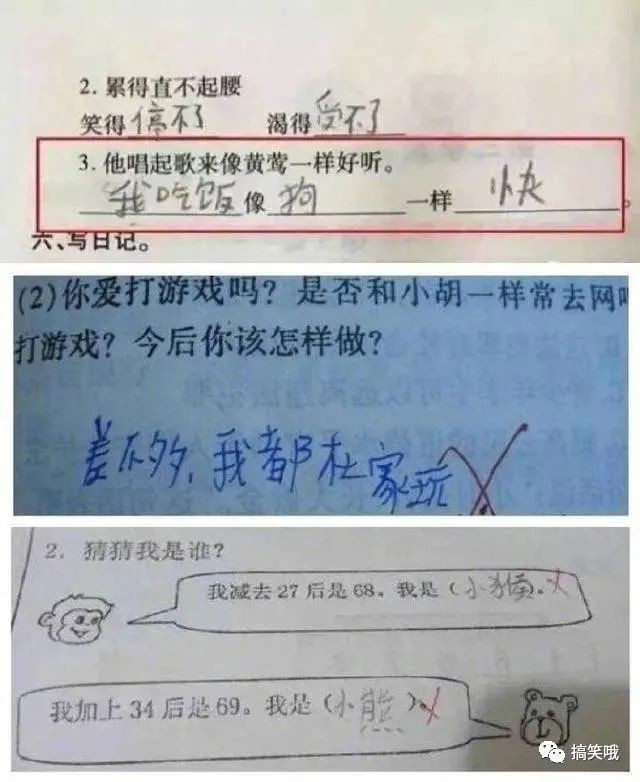 2. 累得直不起腰
笑得 停不了 渴得 受不了
3. 他唱起歌来像黄莺一样好听。
我吃饭 像 狗 一样 快 。
六、写日记。
(2)你爱打游戏吗？是否和小胡一样常去网吧
打游戏？今后你该怎样做？
差不多，我都在家玩
2. 猜猜我是谁？
我减去27后是68。我是（小猴）。
我加上34后是69。我是（小熊）。
搞笑哦